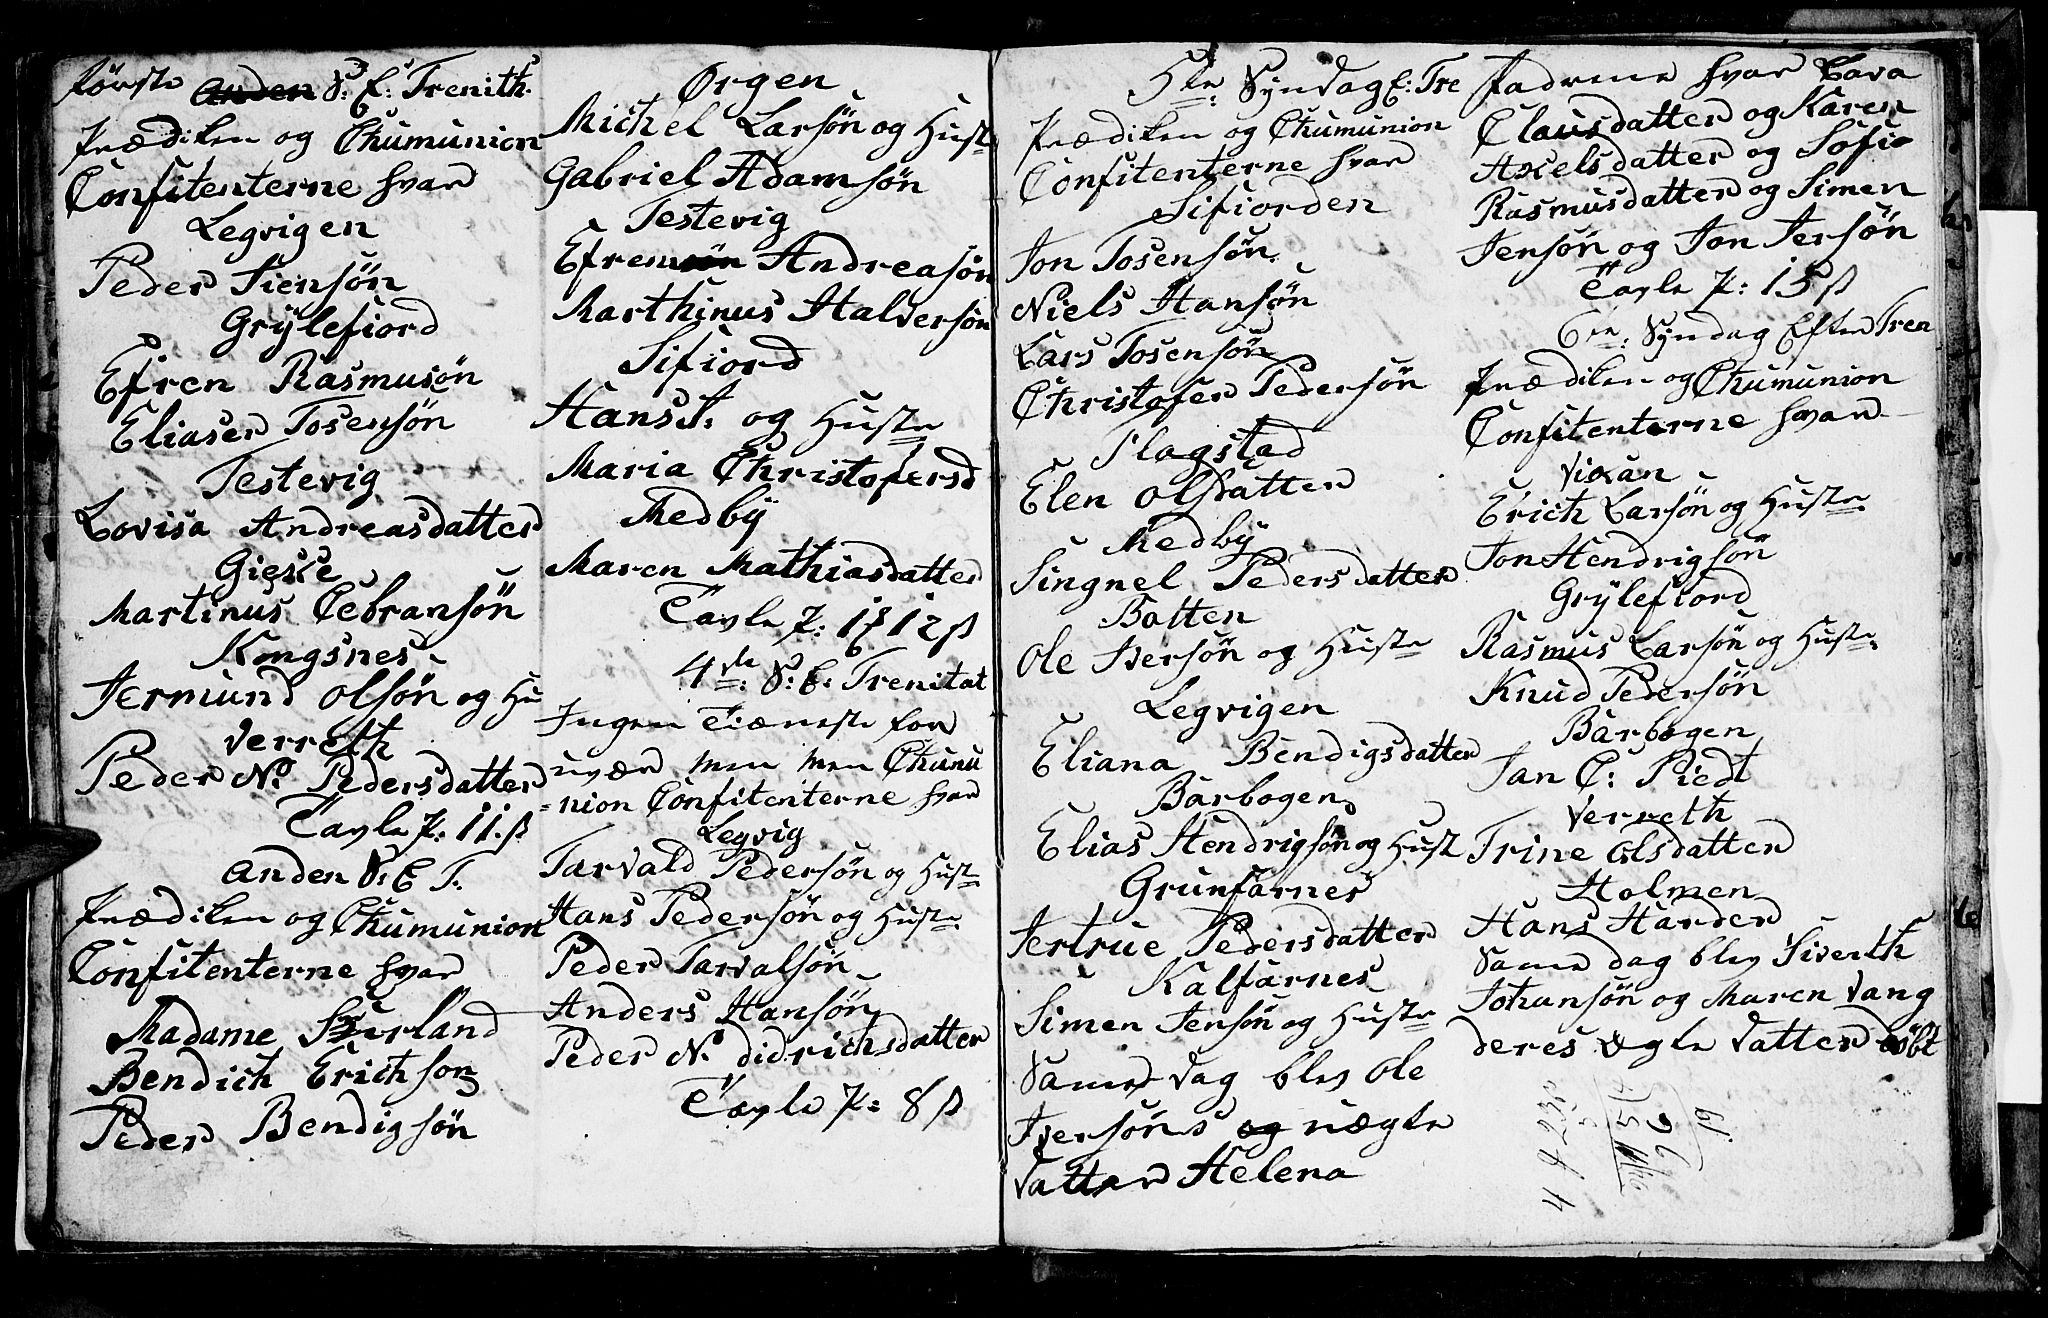 første Anden S: E: Trenith.
Prædiken og Chumunion
Confitenterne hvar
Legvigen
Peder Siensön
Grÿlefiord
Efren Rasmusön
Eliaser Tosensön
Testevig
Lovisa Andreasdatter
Gieske
Martinus Cebransön
Kongsnes
Jermund olsön og Hu
Verreth
Peder No. Pedersdatter
Tavle P: 11 ß
Anden S: E T.
Prædiken og Chumunion
Confitenterne hvar
Madame Sürland
Bendich Erichson
Peder Bendigsön
Ørgen
Michel Larsön og Hust
Gabriel Adamsön
Testevig
Efrem Andreasön
Marthinus Halversön
Sifiord
Hans A: og Hustr
Maria Christofersd
Medbÿ
Maren Mathiasdatter
Tavle P: 1 12 ß
4de: S: E: Trenitat
Ingen Tiæneste for
uvær men men Chumu
nion Confitenterne hvar
Legvig
Tarvald Pedersön og Hustr
Hans Pedersön og Hustr
Peder Tarvalsön
Anders Hansön
Peder N. didrichsdatter
Tavle P: 8 ß
5te: Syndag E: Tre
Prædiken og Chumunion
Confitenterne hvar
Sifiorden
Jon Tosensön
Niels Hansön
Lars Tosensön
Christofer Pedersön
Flagstad
Elen olsdatter
Medbÿ
Singnel Pedersdatter
Batten
Ole Iversön og Hustr
Legvigen
Eliana Bendigsdatter
Barbogen
Elias Hendrigsön og Hust
Grunfarnes
Jertrue Pedersdatter
Kalfarnes
Simen Jensön og Hustr
Samme dag blev Ole
Iversöns og uægte
datter Helena
Fadrene hvar Lava
Clausdatter og Karen
Axelsdatter og Sofie
Rasmusdatter og Simen
Jensön og Jon Jersön
Tavle P: 15 ß
6te: Syndag Efter Tren
Prædiken og Chumunion
Confitenterne hvar
Vioxan
Erich Larsön og Hustr
Jon Hendrigsön
Grÿlefiord
Rasmus Larsön og Hustr
Knud Pedersön
Barbogen
Jan C: Piedt
Verreth
Trine Olsdatter
Holmen
Hans Harder
Same dag blev Siverth
Johansön og Maren Vang
deres ægte datter döbt